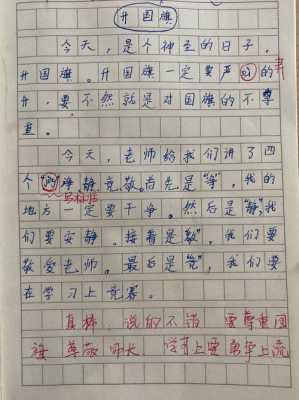 升国旗
今天，是个神圣的日子，
升国旗。升国旗一定要严肃的
升，要不然就是对国旗的不尊
重。
今天，老师给我们讲了四
个"净，静，竞，敬。首先是"净"，我的
地方一定要干净。然后是"静"，我
们要安静。接着是敬"，我们要
敬爱老师。最后是"竞"，我们要
在学习上竞赛。
真棒，说的不错 要尊重国
旗 尊敬师长 学习上要力争上流